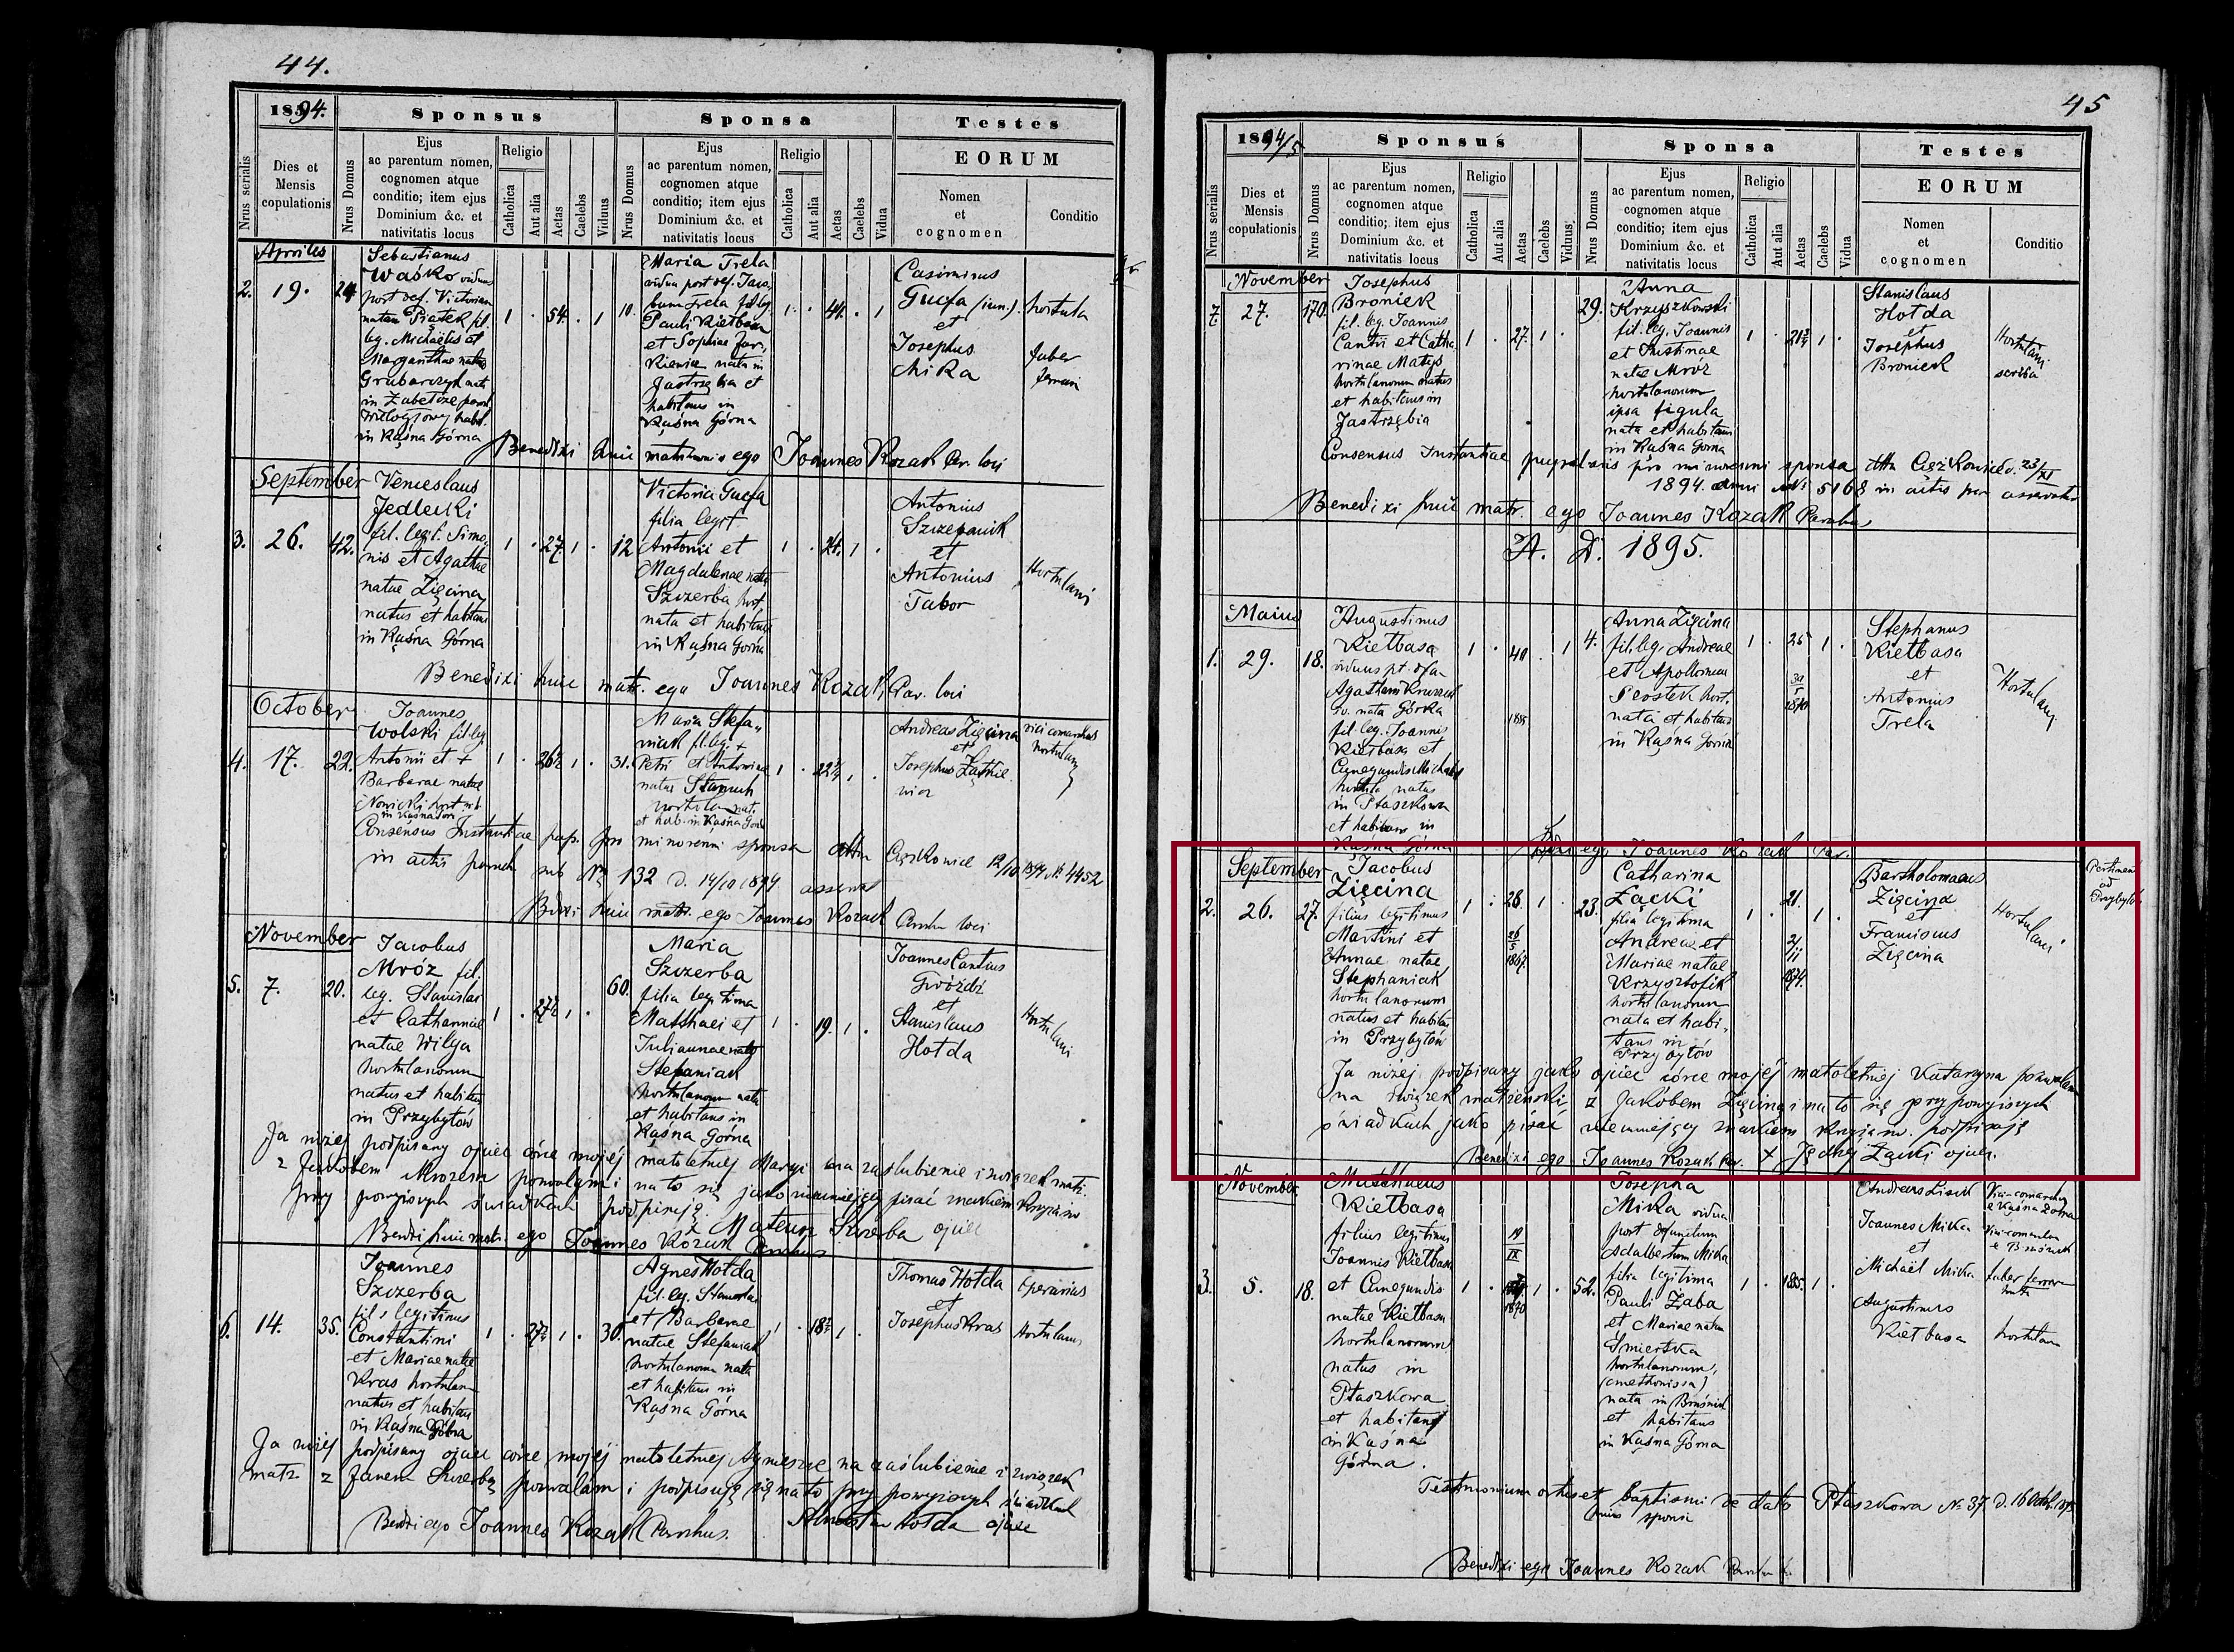 44.
1894.
Sponsus
Sponsa
Testes
Nrus serialis
Dies et
Mensis
copulationis
Nrus Domus
Ejus
ac parentum nomen,
cognomen atque
conditio; item ejus
Dominium &c. et
nativitatis locus
Religio
Catholica
Aut alia
Aetas
Caelebs
Viduus
Nrus Domus
Ejus
ac parentum nomen,
cognomen atque
conditio; item ejus
Dominium &c. et
nativitatis locus
Religio
Catholica
Aut alia
Aetas
Caelebs
Vidua
EORUM
Nomen
et
cognomen
Conditio
Aprilis
2. 19. 24
Sebastianus
Waśko viduus
post def. Victoriam
natam Piątek fil.
leg. Michaëlis et
Margarithae natae
Grubarczyk
in
in Kąśna Górna
1 . 54. . 1
10.
Maria Trela
vidua post def. Jaco
bum Trela fil. leg.
Pauli Kiełbasa
et Sophiae
nata in
Jastrzębia et
habitans in
Kąśna Górna
1 . 44. . 1
Casimirus
Gucfa (iun.)
et
Josephus
Mika
hortula
faber
Benedixi huic matrimonio ego Joannes Kozak Par. loci
September
3. 26. 42.
Venceslaus
Jedlecki
fil. legit. Simo
nis et Agathae
natae Zięcina
natus et habitans
in Kąśna Górna
1 . 27 1 .
12
Victoria Gucfa
filia legit
Antonii et
Magdalenae nata
Szczerba hort.
nata et habitans
in Kąśna Górna
1 . 24. 1 .
Antonius
Szczepanik
et
Antonius
Tabor
Hortulani
Benedixi huic matr. ego Joannes Kozak, Par. loci
October
4. 17. 22.
Joannes
Wolski fil. leg.
Antonii et +
Barbarae natae
Nowicki hort. nat
1 . 26½ 1 .
31.
Maria Stefa
niak fil. leg. +
Petri et Antoninae
natae
hortulan nat.
et hab. in Kąśna Gorn
1 . 22 1 .
Andreas Zięcina
et
Josephus
vicicomarchus
hortulani
Consensus Instantiae pup. pro minorenni sponsa dtto Ciężkowice 12/10 1894 N. 4452
in actis paroch sub N. 132 d. 14/10 1894 asservat
Bdixi huic matr. ego Joannes Kozak Paroch loci
November
5. 7. 20.
Jacobus
Mróz fil.
leg. Stanislai
et Catharinae
natae Wilga
hortulanorum
natus et habitans
in Przybyłów
1 . 27½ 1 .
60.
Maria
Szczerba
filia legitima
Matthaei et
Juliannae nata
Stefaniak
hortulanorum nata
et habitans in
Kąśna Górna
1 . 19. 1 .
Joannes Cantius
Gwóźdź
et
Stanislaus
Hotda
Hortulani
Ja niżej podpisany ojciec córce mojej małoletniej Maryi na zaślubienie i związek małż.
z Jakóbem Mrozem pozwalam i na to się jako nieumiejący pisać znakiem krzyża św
przy powyższych świadkach podpisuję. + Mateusz Szczerba ojciec
Bendixi huic matr. ego Joannes Kozak Parochus
6. 14. 35.
Joannes
Szczerba
fil. legitimus
Constantini
et Mariae natae
Kras hortulan
natus et habitans
in Kąśna Górna
1 . 27½ 1 .
30.
Agnes Hotda
fil. leg. Stanislai
et Barbarae
natae Stefaniak
hortulanorum nata
et habitans in
Kąśna Górna
1 . 18½ 1 .
Thomas Hotda
et
Josephus Kras
operarius
hortulanus
Ja niżej podpisany ojciec córce mojej małoletniej Agnieszce na zaślubienie i związek
małż z Janem Szczerbą pozwalam i podpisuję się na to przy powyższych świadkach
Bendixi ego Joannes Kozak Parochus. Hotda ojciec
45
1894/5
Sponsus
Sponsa
Testes
Nrus serialis
Dies et
Mensis
copulationis
Nrus Domus
Ejus
ac parentum nomen,
cognomen atque
conditio; item ejus
Dominium &c. et
nativitatis locus
Religio
Catholica
Aut alia
Aetas
Caelebs
Viduus
Nrus Domus
Ejus
ac parentum nomen,
cognomen atque
conditio; item ejus
Dominium &c. et
nativitatis locus
Religio
Catholica
Aut alia
Aetas
Caelebs
Vidua
EORUM
Nomen
et
cognomen
Conditio
November
7. 27. 170.
Josephus
Broniek
fil. leg. Joannis
Cantii et Catha
rinae Matys
hortulanorum natus
et habitans in
Jastrzębia
1 . 27. 1 .
29.
Anna
Krzyszkowski
fil. leg. Joannis
et Justinae
natae Mróz
hortulanorum
ipsa figula
nata et habitans
in Kąśna Górna
1 . 1 .
Stanislaus
Hotda
et
Josephus
Broniek
Hortulani
scriba
Consensus Instantiae pupilaris pro minorenni sponsa dtto Ciężkowice d. 23/XI
1894. anni N. 5168 in actis par asservatur
Benedixi huic matr. ego Joannes Kozak Parochus
A. D. 1895.
Maius
1. 29. 18.
Augustinus
Kiełbasa
viduus pt. dfa
Agatham
nata Górka
fil. leg. Joannis
Kiełbasa et
Cunegundis Michalik
natus
in Ptaszkowa
et habitans in
Kąśna Górna
1 . 40 . 1
4.
Anna Zięcina
fil. leg. Andreae
et Apolloniae
hort.
nata et habitans
in Kąśna Górna
1 . 25 1 .
30
5
1870
Stephanus
Kiełbasa
et
Antonius
Trela
Hortulani
Bdxi ego Joannes Kozak Par.
September
2. 26. 27.
Jacobus
Zięcina
filius legitimus
Martini et
Annae natae
Stephaniak
hortulanorum
natus et habitans
in Przybyłów
1 . 28. 1 .
26
5
1867.
23.
Catharina
Łącki
filia legitima
Andreae et
Mariae natae
Krzysztofik
hortulanorum
nata et habi
tans in
Przybyłów
1 . 21. 1 .
2/
11
1874.
Bartholomaeus
Zięcina
et
Franciscus
Zięcina
Hortulani
Pertinen
ad
Przybyłów
Ja niżej podpisany jako ojciec córce mojej małoletniej Katarzyna pozwalam
na związek małżeński z Jakóbem Zięciną i na to się przy powyższych
świadkach jako pisać nieumiejący znakiem krzyża św. podpisuję
Benedixi ego Joannes Kozak Par. + Jędrzej Łącki ojciec.
November
3. 5. 18.
Matthaeus
Kiełbasa
filius legitimus
Joannis Kiełbasa
et Cunegundis
natae Kiełbasa
hortulanorum
natus in
Ptaszkowa
et habitans
in Kąśna
Górna
19
IX
1870
1 . 1 .
52.
Josepha
Mika vidua
post defunctum
Adalbertum Mika
filia legitima
Pauli Zaba
et Mariae natae
Smierzka
hortulanorum,
(cmethonissa)
nata in Bruśnik
et habitans
in Kąśna Górna
1 . 1 .
Andreas Lisak
Joannes Mika
et
Michaël Mika
Augustinus
Kiełbasa
Vici-comarcha
e Kąśna Dolna
Vici-comarcha
e Bruśnik
faber ferrarius
hortulan
Testimonium ortus et baptismi de dato Ptaszkowa N. 37 d. 16 Octob.
huius sponsi
Benedixi ego Joannes Kozak Parochus